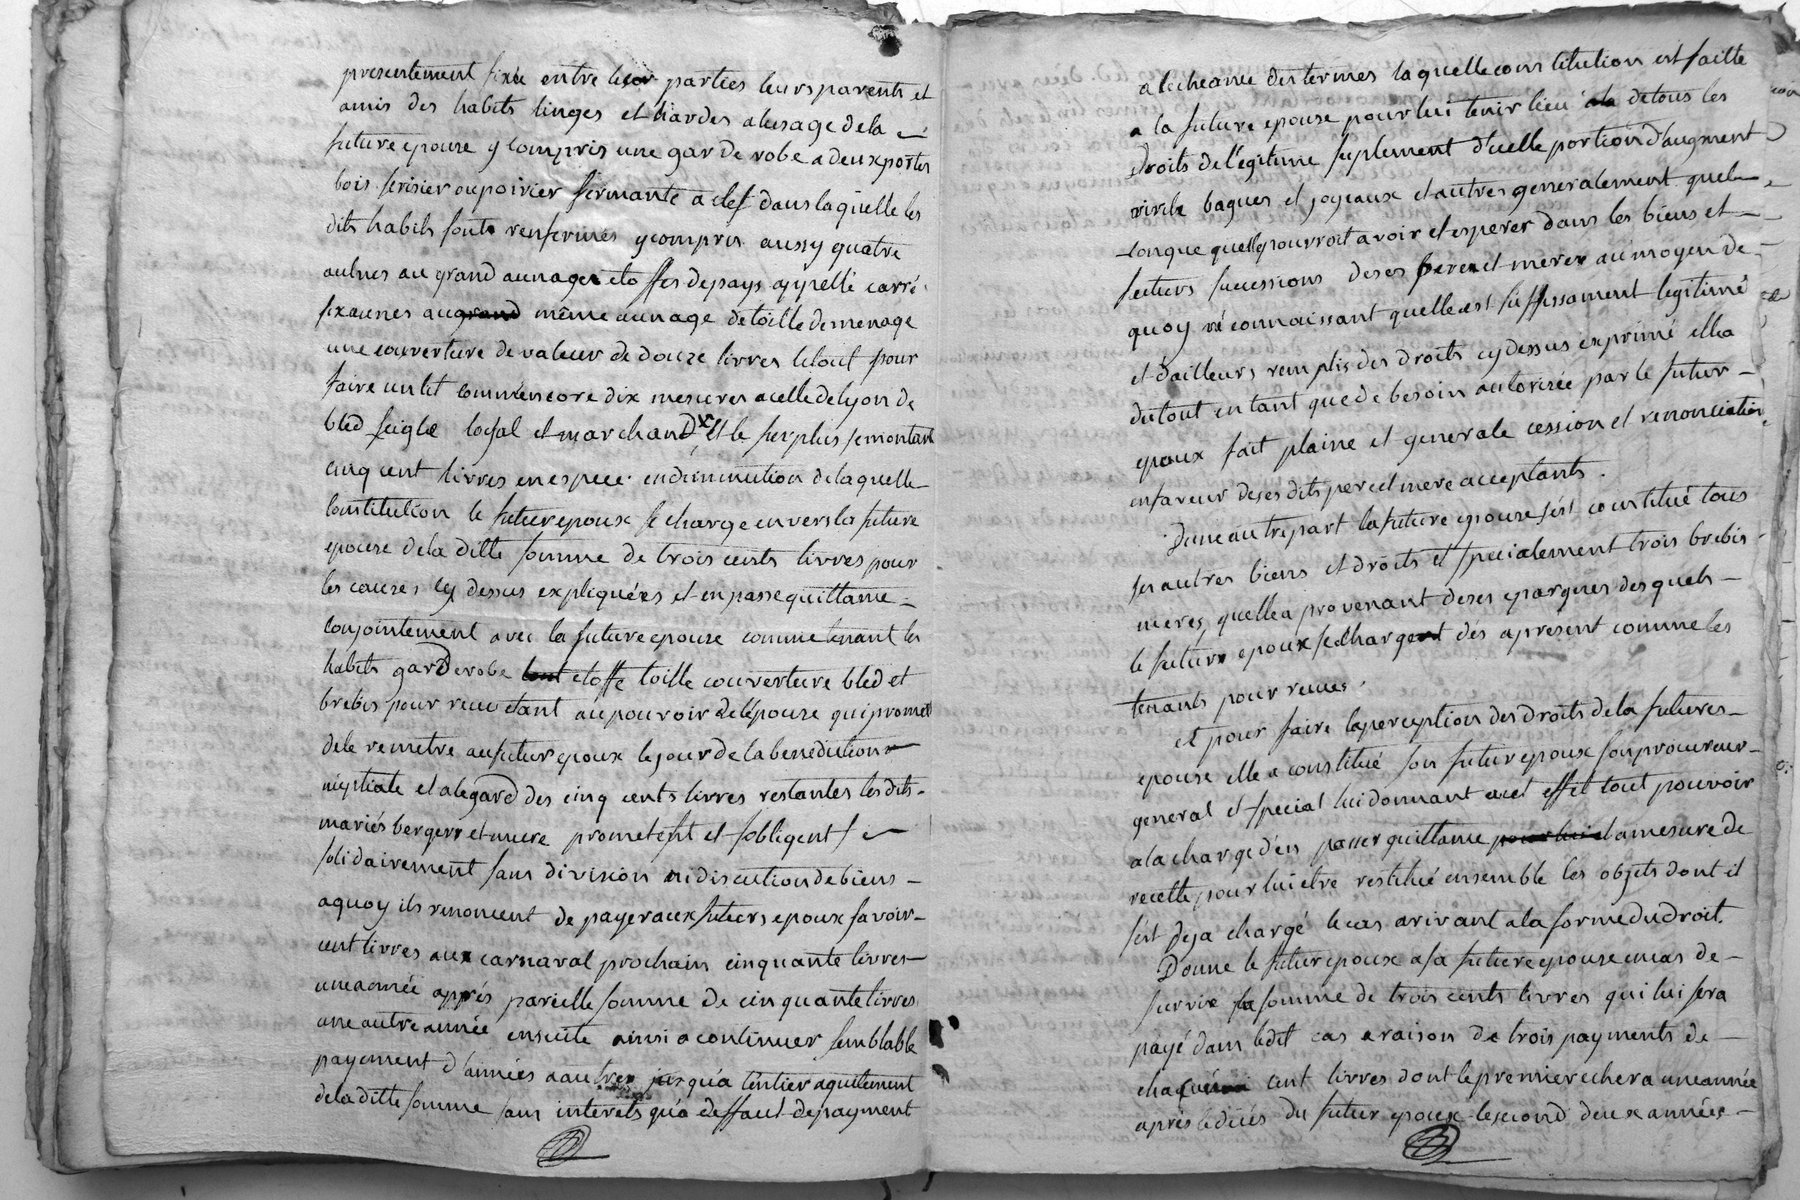 presentement fixée entre les parties leurs parents et
amis des habits linges et hardes a lusage de la
future epouse y compris une garde robe a deux portes
bois serisier ou poirier fermante a clef dans laquelle les
dits habits sont renfermés y compris aussy quatre
aulnes au grand aunage etoffes de pays appellé carré
six aunes au grand même aunage de toille de menage
une couverture de valeur de douze livres le tout pour
faire un lit comme encore dix mesures acelle de lyon de
bled seigle loyal et marchand et le surplus se montant
cinq cent livres en espece en diminution de laquelle
constitution le futur epoux se charge envers la future
epouse de la ditte somme de trois cents livres pour
les causes cy dessus expliquées et en passe quittance
conjointement avec la future epouse comme tenant les
habits garderobe tout etoffe toille couverture bled et
brebis pour reçu etant au pouvoir de lépouse qui promet
de le remetre au futur epoux le jour de la benediction
nuptiale et alegard des cinq cents livres restantes les dits
mariés berger et mure prometent et sobligent
solidairement sans division ni discution de biens
aquoy ils renoncent de payer aux futurs epoux savoir
cent livres aux carnaval prochain cinquante livres
une année apprés pareille somme de cinquante livres
une autre année ensuite ainsi a continuer semblable
payement d'années a autres jusqu'a léntier aquitement
de la ditte somme sans interets qu'a deffaut de payment
a lecheance des termes laquelle constitution est faitte
a la future epouse pour lui tenir lieu de tous les
droits de légitime suplement d'icelle portion d'augment
virile bagues et joyeaux et autres generalement quel
conque quelle pourroit avoir et esperer dans les biens et
futurs sucessions de ses pere et mere au moyen de
quoy réconnaissant quelle est suffisament legitimé
et d'ailleurs remplie des droits cy dessus exprimé elle a
du tout en tant que de besoin autorisée par le futur
epoux fait plaine et generale cession et renonciation
en faveur de ses dits pere et mere acceptants.
Dune autre part la future epouse s'est constitué tous
ses autres biens et droits et specialement trois brebis
meres quelle a provenant de ses eparques des quels
le futur epoux se charge dés apresent comme les
tenants pour reçues.
et pour faire la perception des droits de la future
epouse elle a constitué son futur epoux son procureur
general et special lui donnant a cet effet tout pouvoir
a la charge d'en passer quittance pour lui a la mesure de
recette, pour lui etre restitué ensemble les objets dont il
s'est deja chargé le cas arivant a la forme du droit.
Donne le futur epoux a sa future epouse en cas de
survie la somme de trois cents livres qui lui sera
payé dans ledit cas a raison de trois payments de
chaqu'un cent livres dont le premier echera une année
après le décés du futur epoux le second deux années